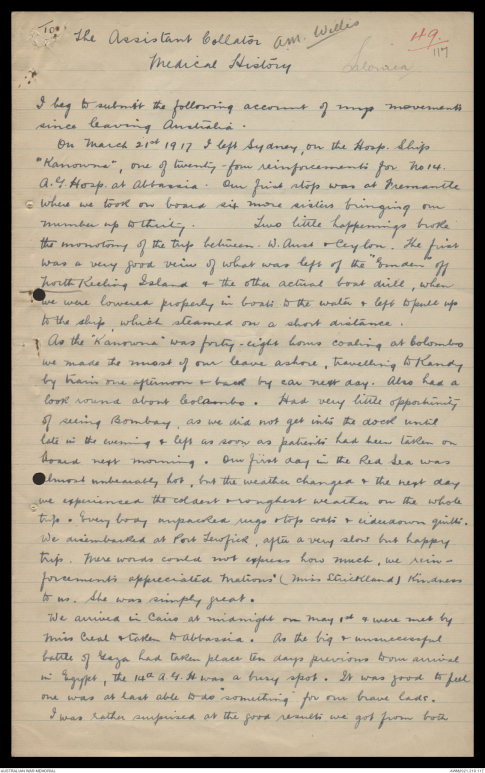 101
The Assistant Collator A.M. Willis
Medical History
49.
117
I beg to submit the following account of my movements
since leaving Australia.
On March 21st 1917 I left Sydney, on the Hosp. Ship
"Kanowna", one of twenty-four reinforcements for No 14.
A.G. Hosp. at Abbassia. Our first stop was at Fremantle
where we took on board six more sisters bringing our
number up to thirty. Two little happenings broke
the monotony of the trip between W. Aust & Ceylon. The first
was a very good view of what was left of the "Emden" off
North Keeling Island & the other actual boat drill, when
we were lowered properly in boats to the water & left to pull up
to the ship, which steamed on a short distance.
As the "Kanowna" was forty-eight hours coaling at Colombo
we made the most of our leave ashore, travelling to Kandy
by train one afternoon & back by car next day. Also had a
look round about Colombo. Had very little opportunity
of seeing Bombay, as we did not get into the dock until
late in the evening & left as soon as patients had been taken on
board next morning. Our first day in the Red Sea was
almost unbearably hot, but the weather changed & the next day
we experienced the coldest & roughest weather on the whole
trip. Every body unpacked rugs & top coats & eiderdown quilts.
We disembarked at Port Tewfick, after a very slow but happy
trip. Mere words could not express how much, we rein-
forcements appreciated Matrons' (Miss Strickland) kindness
to us. She was simply great.
We arrived in Cairo at midnight on May 1st & were met by
Miss Creal & taken to Abbassia. As the big & unsuccessful
battle of Gaza had taken place ten days previous to our arrival
in Egypt, the 14th A.G.H was a busy spot. It was good to feel
one was at last able to do "something" for our brave lads.
I was rather surprised at the good results we got from both
AUSTRALIAN WAR MEMORIAL